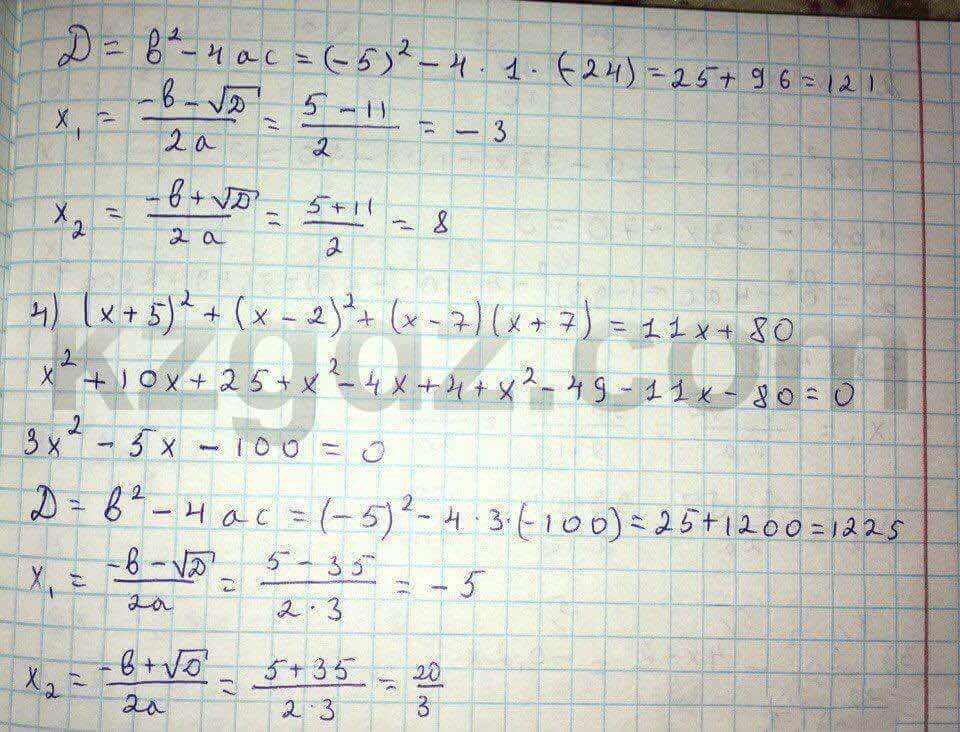 D = b² - 4ac = (-5)² - 4 · 1 · (-24) = 25 + 96 = 121
x₁ = (-b - √D)/(2a) = (5 - 11)/2 = -3
x₂ = (-b + √D)/(2a) = (5 + 11)/2 = 8
4) (x + 5)² + (x - 2)² + (x - 7)(x + 7) = 11x + 80
kzgdz.com
x² + 10x + 25 + x² - 4x + 4 + x² - 49 - 11x - 80 = 0
3x² - 5x - 100 = 0
D = b² - 4ac = (-5)² - 4 · 3 · (-100) = 25 + 1200 = 1225
x₁ = (-b - √D)/(2a) = (5 - 35)/(2 · 3) = -5
x₂ = (-b + √D)/(2a) = (5 + 35)/(2 · 3) = 20/3